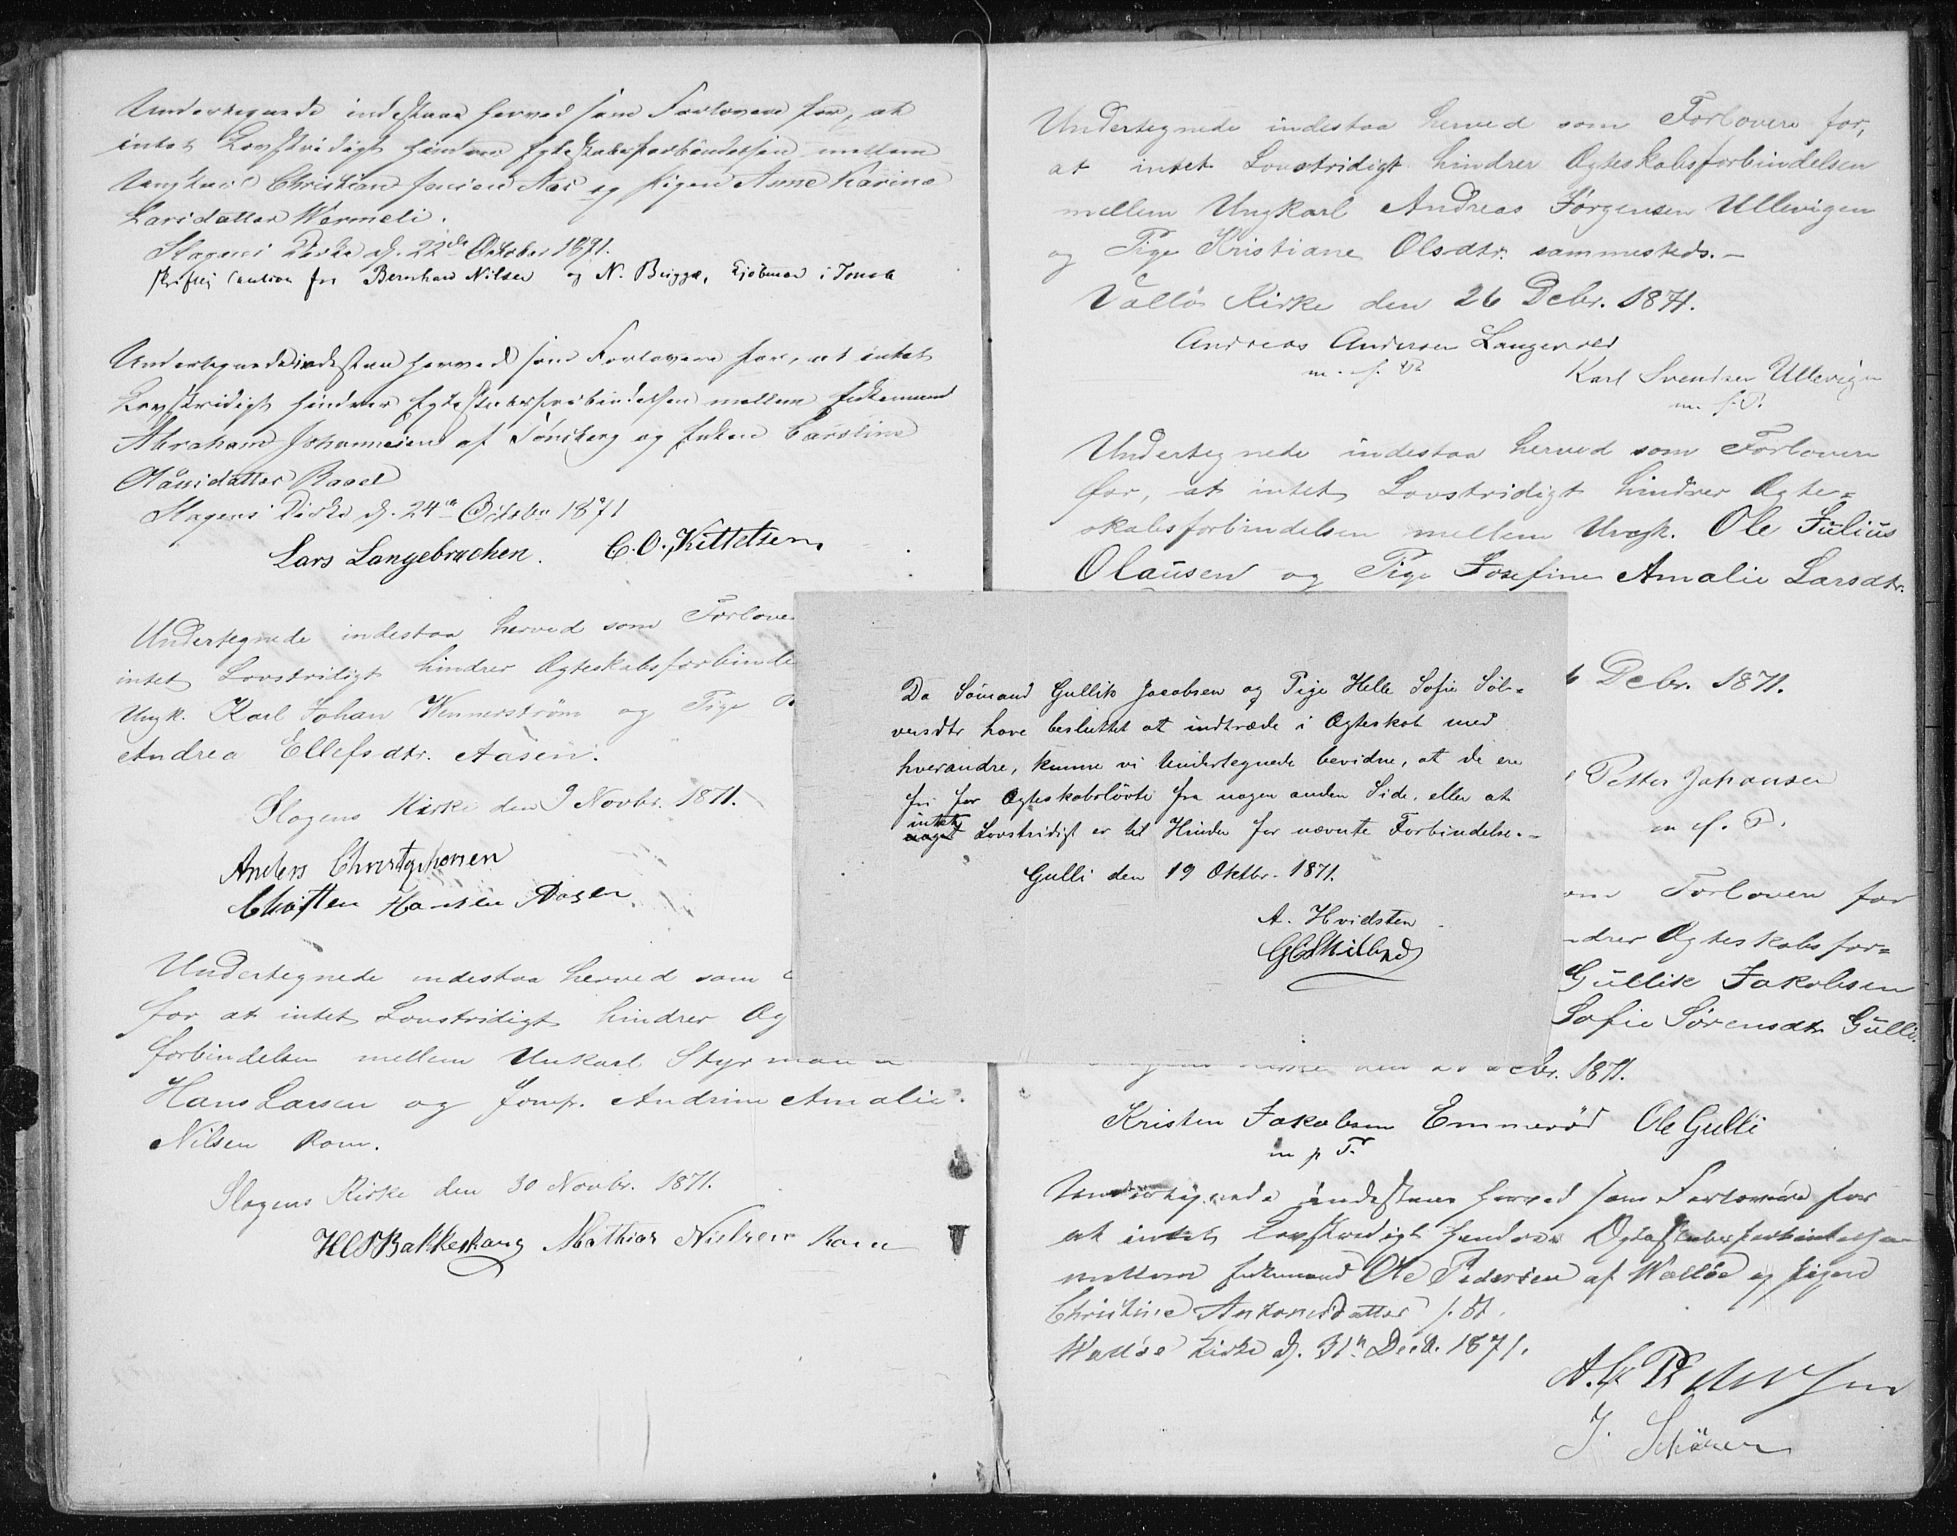 Undertegnede indestaae herved som Forlovere for, at
intet Lovstridigt hindrer Egteskabsforbindelsen mellem
Ungkarl Christian Jensen Aas og Pigen Anne Karine
Larsdatter Wermeli.
Slagens Kirke d. 22de October 1871.
skriftlig Caution fra Bernhard Nilsen og N. Brigge, Kjøbmænd i Tønsb
Undertegnede indestaae herved som Forlovere for, at intet
Lovstridigt hindrer Egteskabsforbindelsen mellem Enkemand
Abraham Johannesen af Tønsberg og Enken Caroline
Hansdatter Basel
Slagens Kirke d. 24de October 1871
Lars Langebrachen. C. O. Kittelsen,
Undertegnede indestaa herved som Forlove
intet Lovstridigt hindrer Ægteskabsforbinde
Ungk. Karl Johan Wennerstrøm og Pige
Andrea Ellefsdtr. Aasen.
Slagens Kirke den 9 Novbr. 1871.
Anders Christophersen
Christen Hansen Aasen
Undertegnede indestaa herved som
for at intet Lovstridigt hindrer Æg
forbindelsen mellem Unkarl Styrmann
Hans Larsen og Jomf. Andrine Amalie
Nilsen Rom.
Slagens Kirke den 30 Novbr. 1871.
H C S Bakkeskaug Mathias Nielsen Rom
Da Sømand Gullik Jacobsen og Pige Helle Sofie Søl-
versdtr have besluttet at indtræde i Ægteskab med
hverandre, kunne vi Undertegnede bevidne, at de ere
fri for Ægteskabsløvte fra nogen anden Side, eller at
intet
noget Lovstridigt er til Hinder for nævnte Forbindelse.-
Gulli den 19 Oktbr. 1871.
A. Hvidsten
Undertegnede indestaa herved som Forlovere for,
at intet Lovstridigt hindrer Ægteskabsforbindelsen
mellem Ungkarl Andreas Jørgensen Ullevigen
og Pige Kristiane Olsdtr. sammesteds.-
Valløs Kirke den 26 Debr. 1871.
Andreas Andersen Langevold
m. f. P.
Karl Svendsen Ullevigen
m. f. P.
Undertegnede indestaa herved som Forlovere
for, at intet Lovstridigt hindrer Ægte=
skabsforbindelsen mellem Ungk. Ole Julius
Olausen og Pige Josefine Amalie Larsdtr.
6 Debr. 1871.
Petter Johansen
m f. P.
om Forlovere for
ndrer Ægteskabsfor=
Gullik Jakobsen
Sofie Sørensdtr Gulli.
ebr. 1871.
Kristen Jakobsen Emmerød Ole Gulli
m p P.
Undertegnede indestaae herved som Forlovere for
at intet Lovstridigt hindrer Ægteskabsforbindelsen
mellem Enkemand Ole Pedersen af Walløe og Pigen
Christine Antonsdatter f. St.
Walløe Kirke d. 31te Decb. 1871.